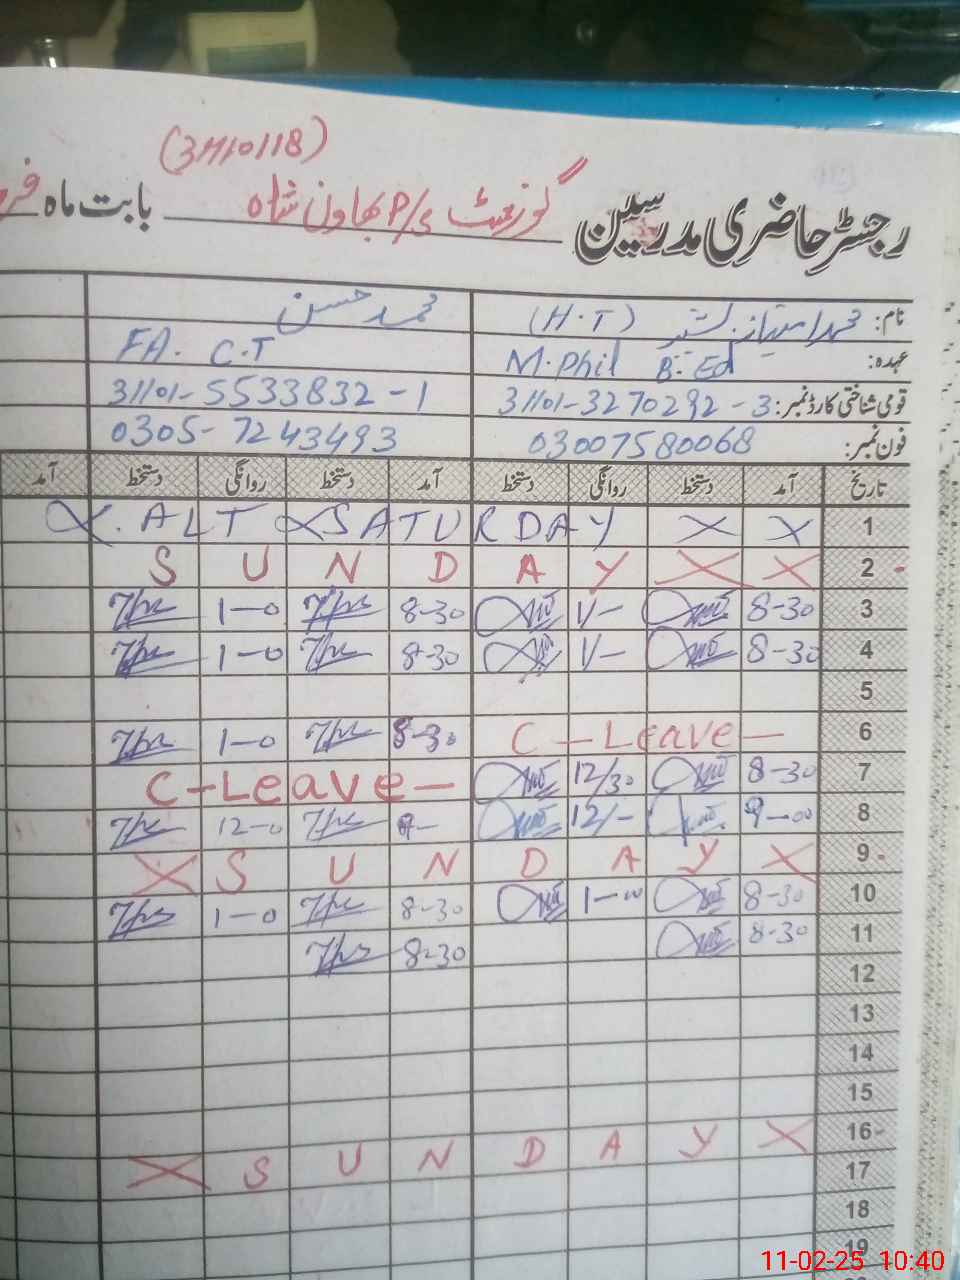 (31110118)
رجسٹر حاضری مدرسین گورنمنٹ P/S بھاون شاہ بابت ماہ
نام: محمد امتیاز بشیر (H.T) محمد حسن
عہدہ: M.Phil B.Ed FA. C.T
قومی شناختی کارڈ نمبر: 31101-3270292-3 31101-5533832-1
فون نمبر: 03007580068 0305-7243493
تاریخ آمد دستخط روانگی دستخط آمد دستخط روانگی دستخط آمد
1 X. ALT SATURDAY X X
2 SUNDAY X X
3 8-30 1/- 8-30 1-0
4 8-30 1/- 8-30 1-0
5
6 C-Leave- 8-30 1-0
7 8-30 12/30 C-Leave-
8 9-00 12/- 9- 12-0
9 X SUNDAY X
10 8-30 1-00 8-30 1-0
11 8-30 8-30
12
13
14
15
16 X SUNDAY X
17
18
19
11-02-25 10:40